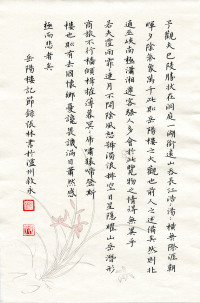 予觀夫巴陵勝狀在洞庭一湖銜遠山吞長江浩〻湯〻橫無際涯朝
暉夕陰氣象萬千此則岳陽樓之大觀也前人之述備矣然則北
通巫峽南極瀟湘遷客騷人多會於此覽物之情得無異乎
若夫霪雨霏〻連月不開陰風怒號濁浪排空日星隱曜山岳潛形
商旅不行檣傾楫摧薄暮冥〻虎嘯猿啼登斯
樓也則有去國懷鄉憂讒畏譏滿目蕭然感
極而悲者矣
岳陽樓記節錄張林書於瀘州敘永